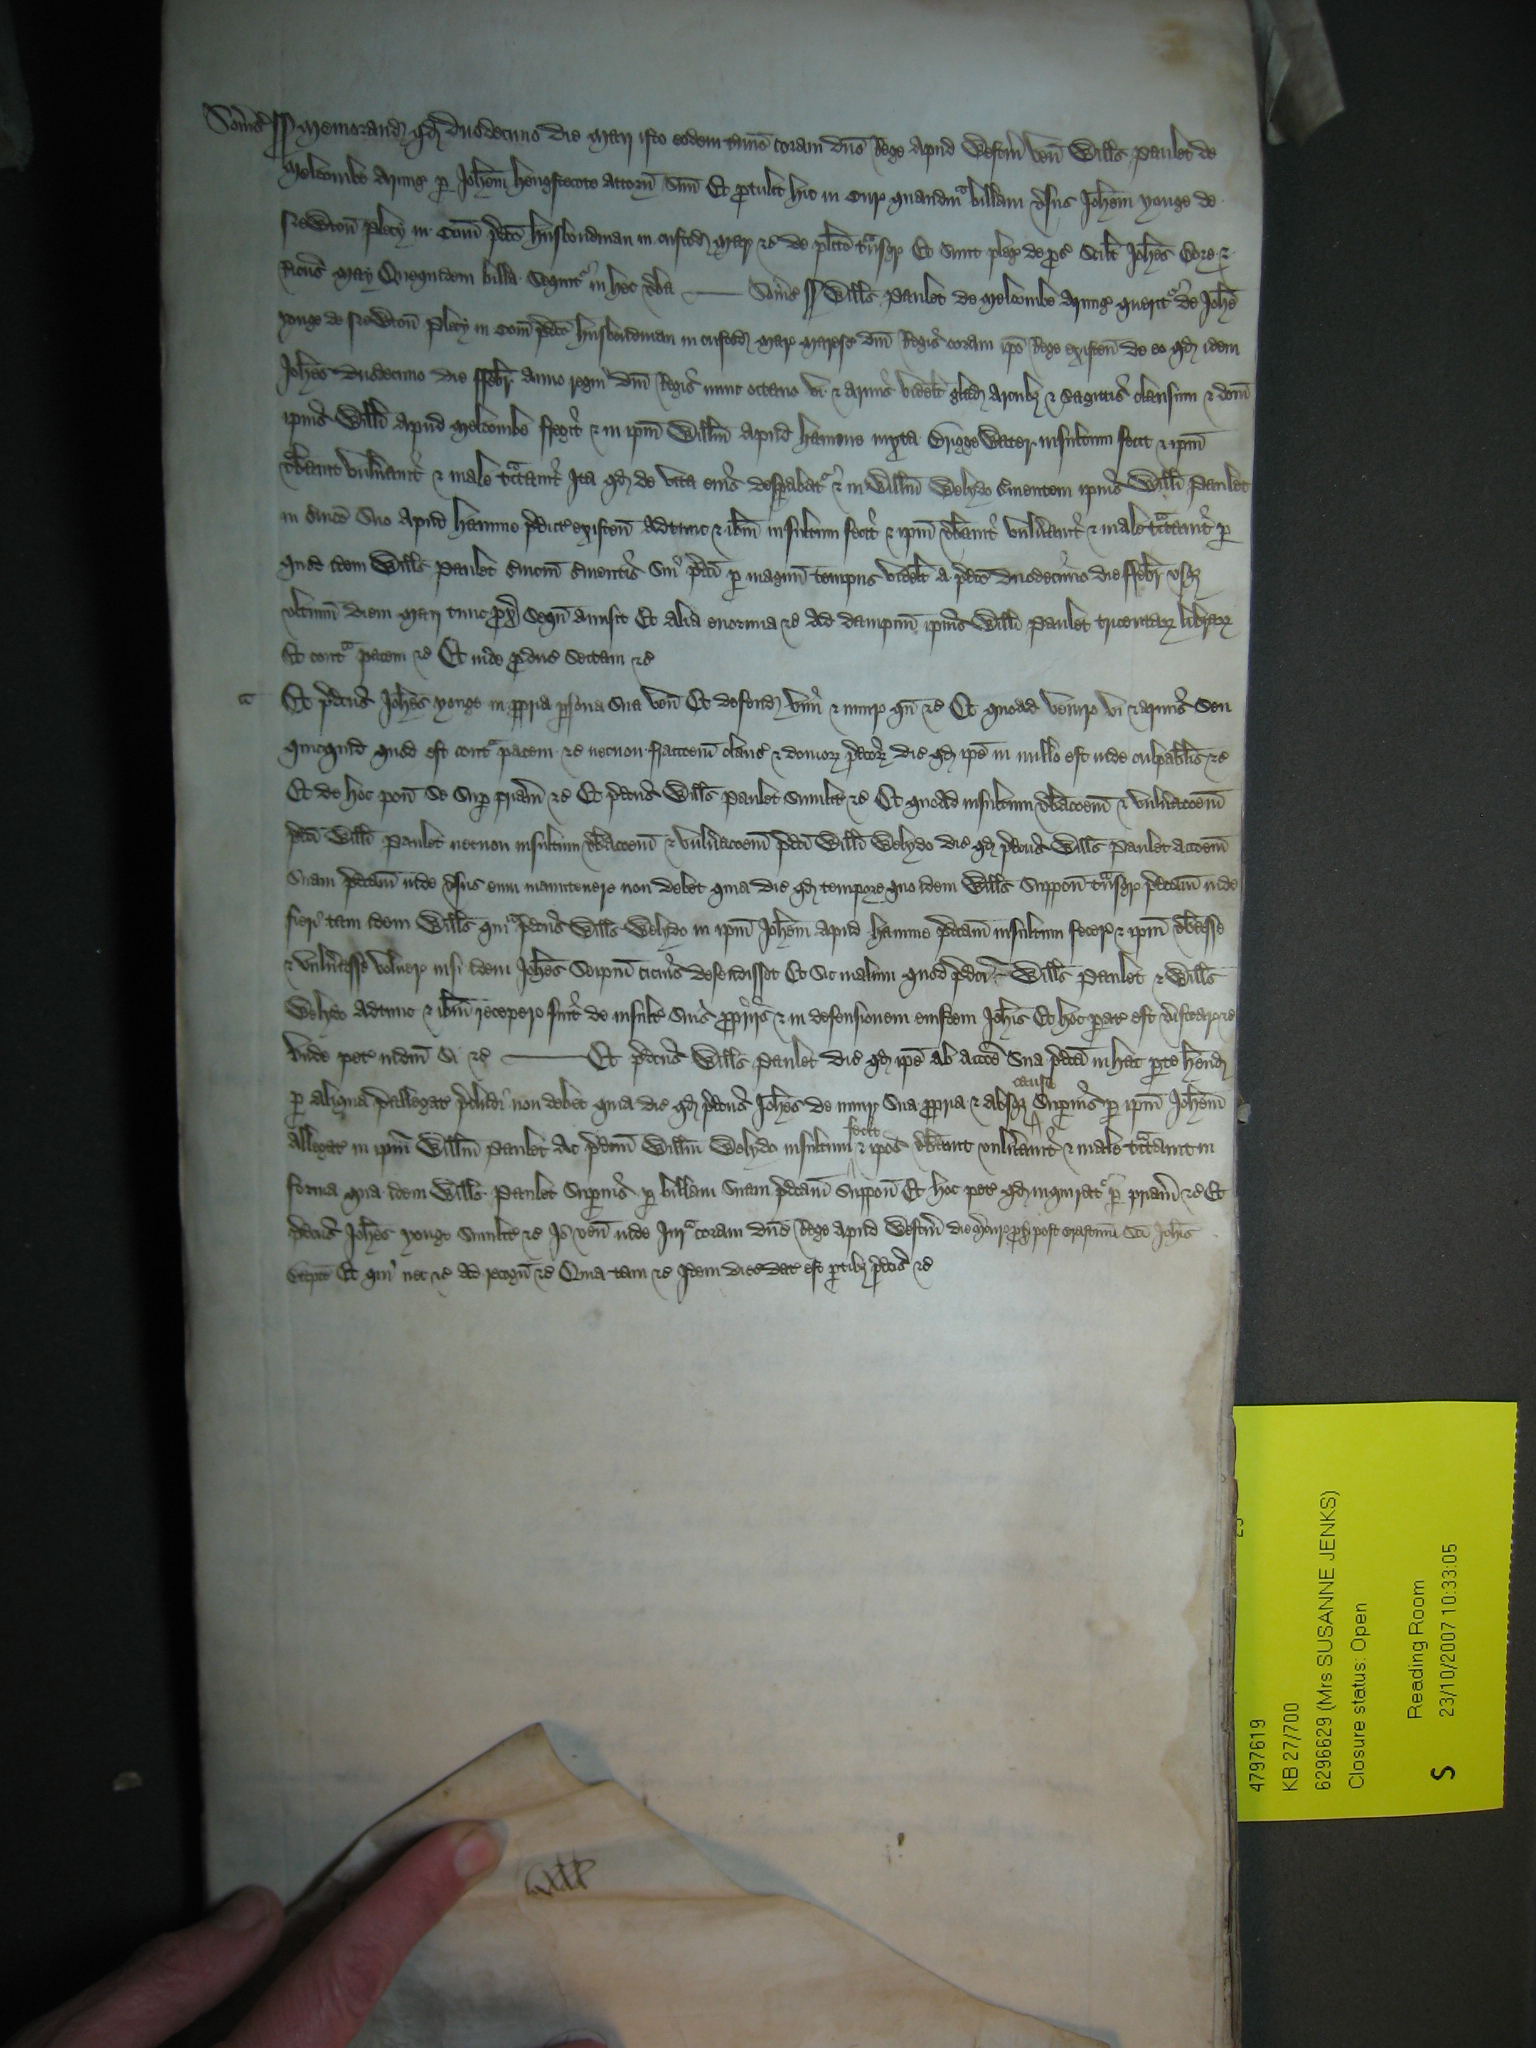 Som's ss Memorand qd duodecimo die Maij isto eodem t'mino coram dno Rege apud Westm ven Wills Paulet de
Melcombe armig p Johem Hengstecote attorn suu Et ptulit hic in Cur quandam billam v'sus Johem Yonge de
Newton Plecy in Com pdco husbondman in custod mar &c de plito t'nsgr Et sunt pleg de ps scilt Johes Core &
Ricus May Que quidem billa sequit' in hec v'ba Som's ss Wills Paulet de Melcombe armig querit' de Johe
Yonge de Newton Plecy in Com pdco husbondman in custod mar maresc dni Regis coram ipo Rege existen de eo qd idem
Johes duodecimo die ffebr anno regni dni Regis nunc octavo vi & armis videlt glad arcubz & sagittis clausum & dom
ipius Willi apud Melcombe fregit & in ipm Willm apud Hamme iuxta Briggewater insultum fecit & ipm
v'bavit vuln'avit & male t'ctavit Ita qd de vita eius desp'abat' & in Willm Welydo s'vientem ipius Willi Paulet
in s'vico suo apud Hamme pdict existen adtunc & ibm insultum fecit & ipm v'bavit vuln'avit & male t'ctavit p
quod idem Wills Paulet s'vicm s'vientis sui pdci p magnu tempus videlt a pdco duodecimo die ffebr usqz
ultimu diem Maij tunc px sequen amisit Et alia enormia &c Ad dampnu ipius Willi Paulet tricentarz librarz
Et cont' pacem &c Et inde pduc sectam &c
Et pdcus Johes Yonge in ppria psona sua ven Et defend vim & iniur qn &c Et quoad venir vi & armis seu
quicquid quod est cont' pacem &c necnon fraccoem claus & domorz pdcorz dic qd ipe in nullo est inde culpabilis &c
Et de hoc pon se sup priam &c Et pdcus Wills Paulet similit &c Et quoad insultum v'bacoem & vuln'acoem
pdci Willi Paulet necnon insultum v'bacoem & vuln'acoem pdci Willi Welydo dic qd pdcus Wills Paulet accoem
suam pdcam inde v'sus eum manutenere non debet quia dic qd tempore quo idem Wills suppon t'nsgr pdcam inde
fieri tam idem Wills qm pdcus Wills Welydo in ipm Johem apud Hamme pdcam insultum fecer & ipm v'basse
& vuln'asse voluer nisi idem Johes seipm cicius defendisset Et sic malum quod pdci Wills Paulet & Wills
Welydo adtunc & ibm recepere fuit de insultu suis ppriis & in defensionem eiusdem Johis Et hoc parat est v'ificare &c
unde pet iudm si &c Et pdcus Wills Paulet dic qd ipe ab accoe sua pdca in hac pte hend
p aliqua pallegat pcludi non debet quia dic qd pdcus Johes de iniur sua ppria & absqz causa supius p ipm Johem
allegat in ipm Willm Paulet ac pdcm Willm Welydo insultum fecit & ipos v'bavit vuln'avit & male t'ctavit in
forma qua idem Wills Paulet supius p billam suam pdcam suppon Et hoc pet qd inquirat' p priam &c Et
pdcus Johes Yonge similit &c Io ven inde Jur' coram dno Rege apud Westm die post crastinum Sci Johis
Et qui nec &c ad recogn &c Quia tam &c Idem dies dat est ptibz pdcis &c
4797619
KB 27/700
6296629 (Mrs SUSANNE JENKS)
Closure status: Open
Reading Room
S 23/10/2007 10:33:05